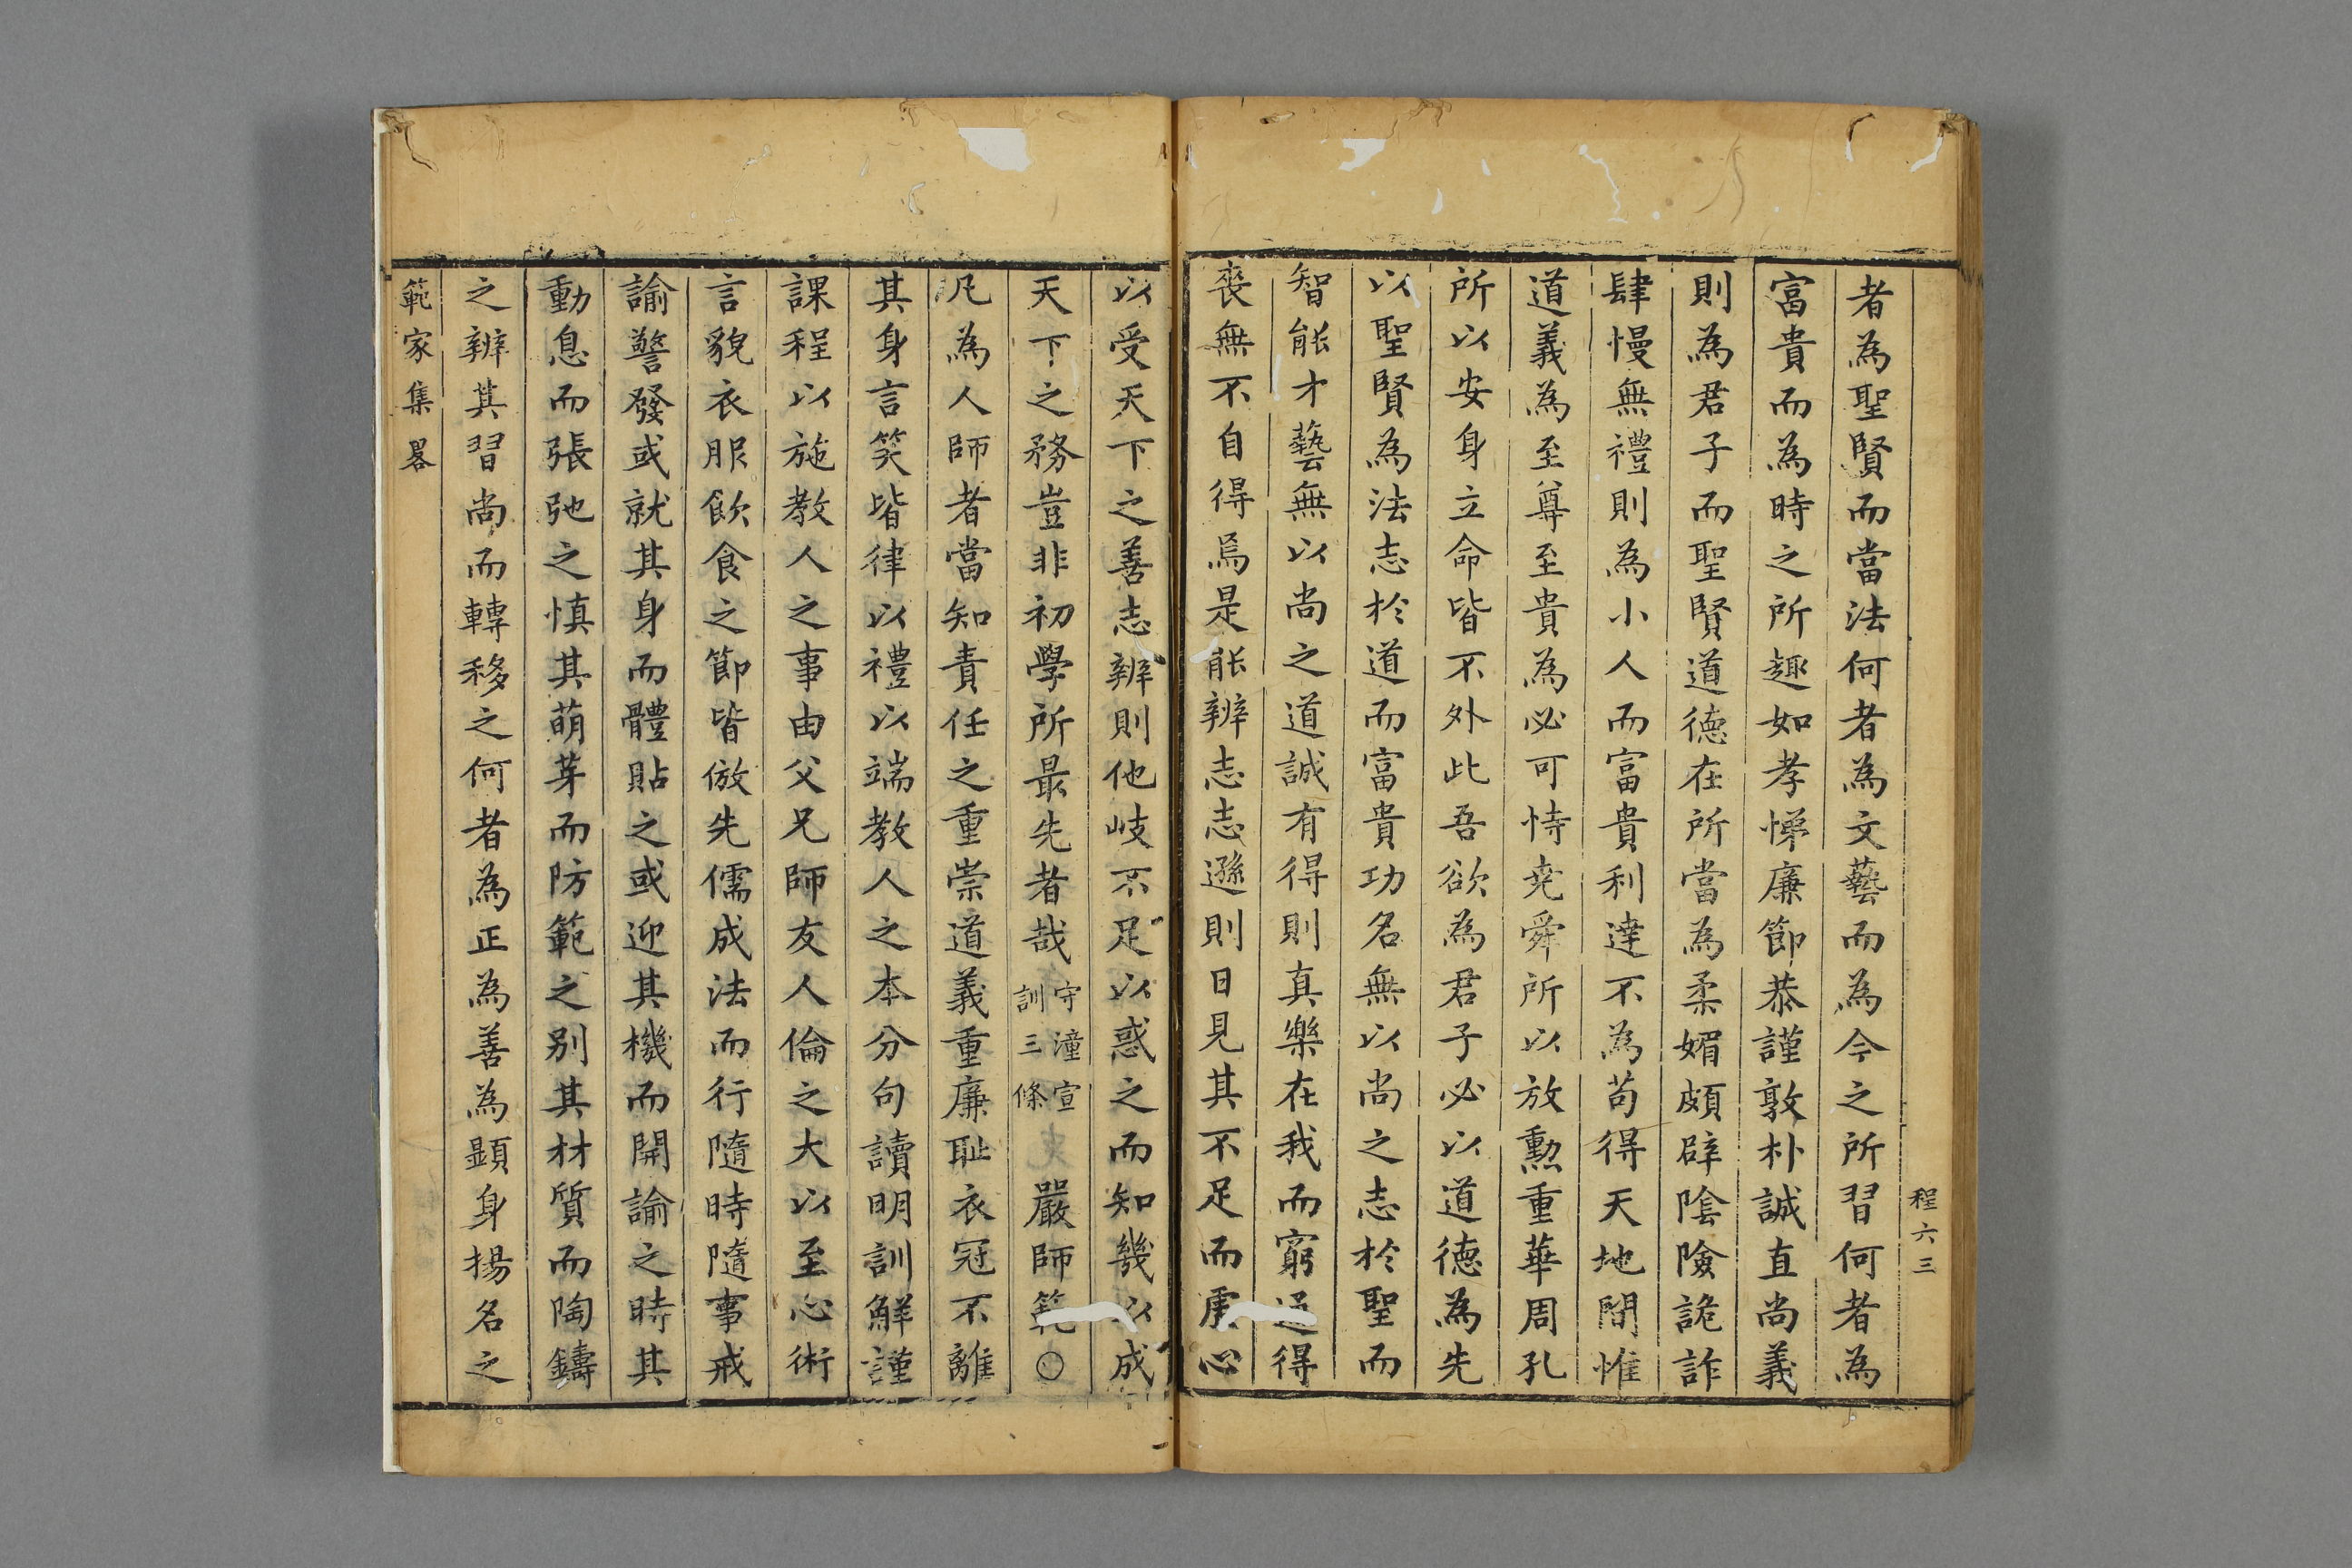 程六三
者為聖賢而當法何者為文藝而為今之所習何者為
富貴而為時之所趣如孝悌廉節恭謹敦朴誠直尚義
則為君子而聖賢道德在所當為柔媚頗辟隂險詭詐
肆慢無禮則為小人而富貴利達不為苟得天地間惟
道義為至尊至貴為必可恃尭舜所以放勲重華周孔
所以安身立命皆不外此吾欲為君子必以道德為先
以聖賢為法志於道而富貴功名無以尚之志於聖而
智能才藝無以尚之道誠有得則真樂在我而窮通得
喪無不自得焉是能辨志志遜則日見其不足而虚心
以受天下之善志辨則他岐不足以惑之而知幾以成
天下之務豈非初學所最先者哉守潼宣訓三條嚴師範○
凡為人師者當知責任之重崇道義重廉耻衣冠不離
其身言笑皆律以禮以端教人之本分句讀明訓觧謹
課程以施教人之事由父兄師友人倫之大以至心術
言貌衣服飲食之節皆倣先儒成法而行隨時隨事戒
諭警發或就其身而體貼之或迎其機而開諭之時其
動息而張弛之慎其萌芽而防範之别其材質而陶鑄
之辨其習尚而轉移之何者為正為善為顯身揚名之
範家集畧